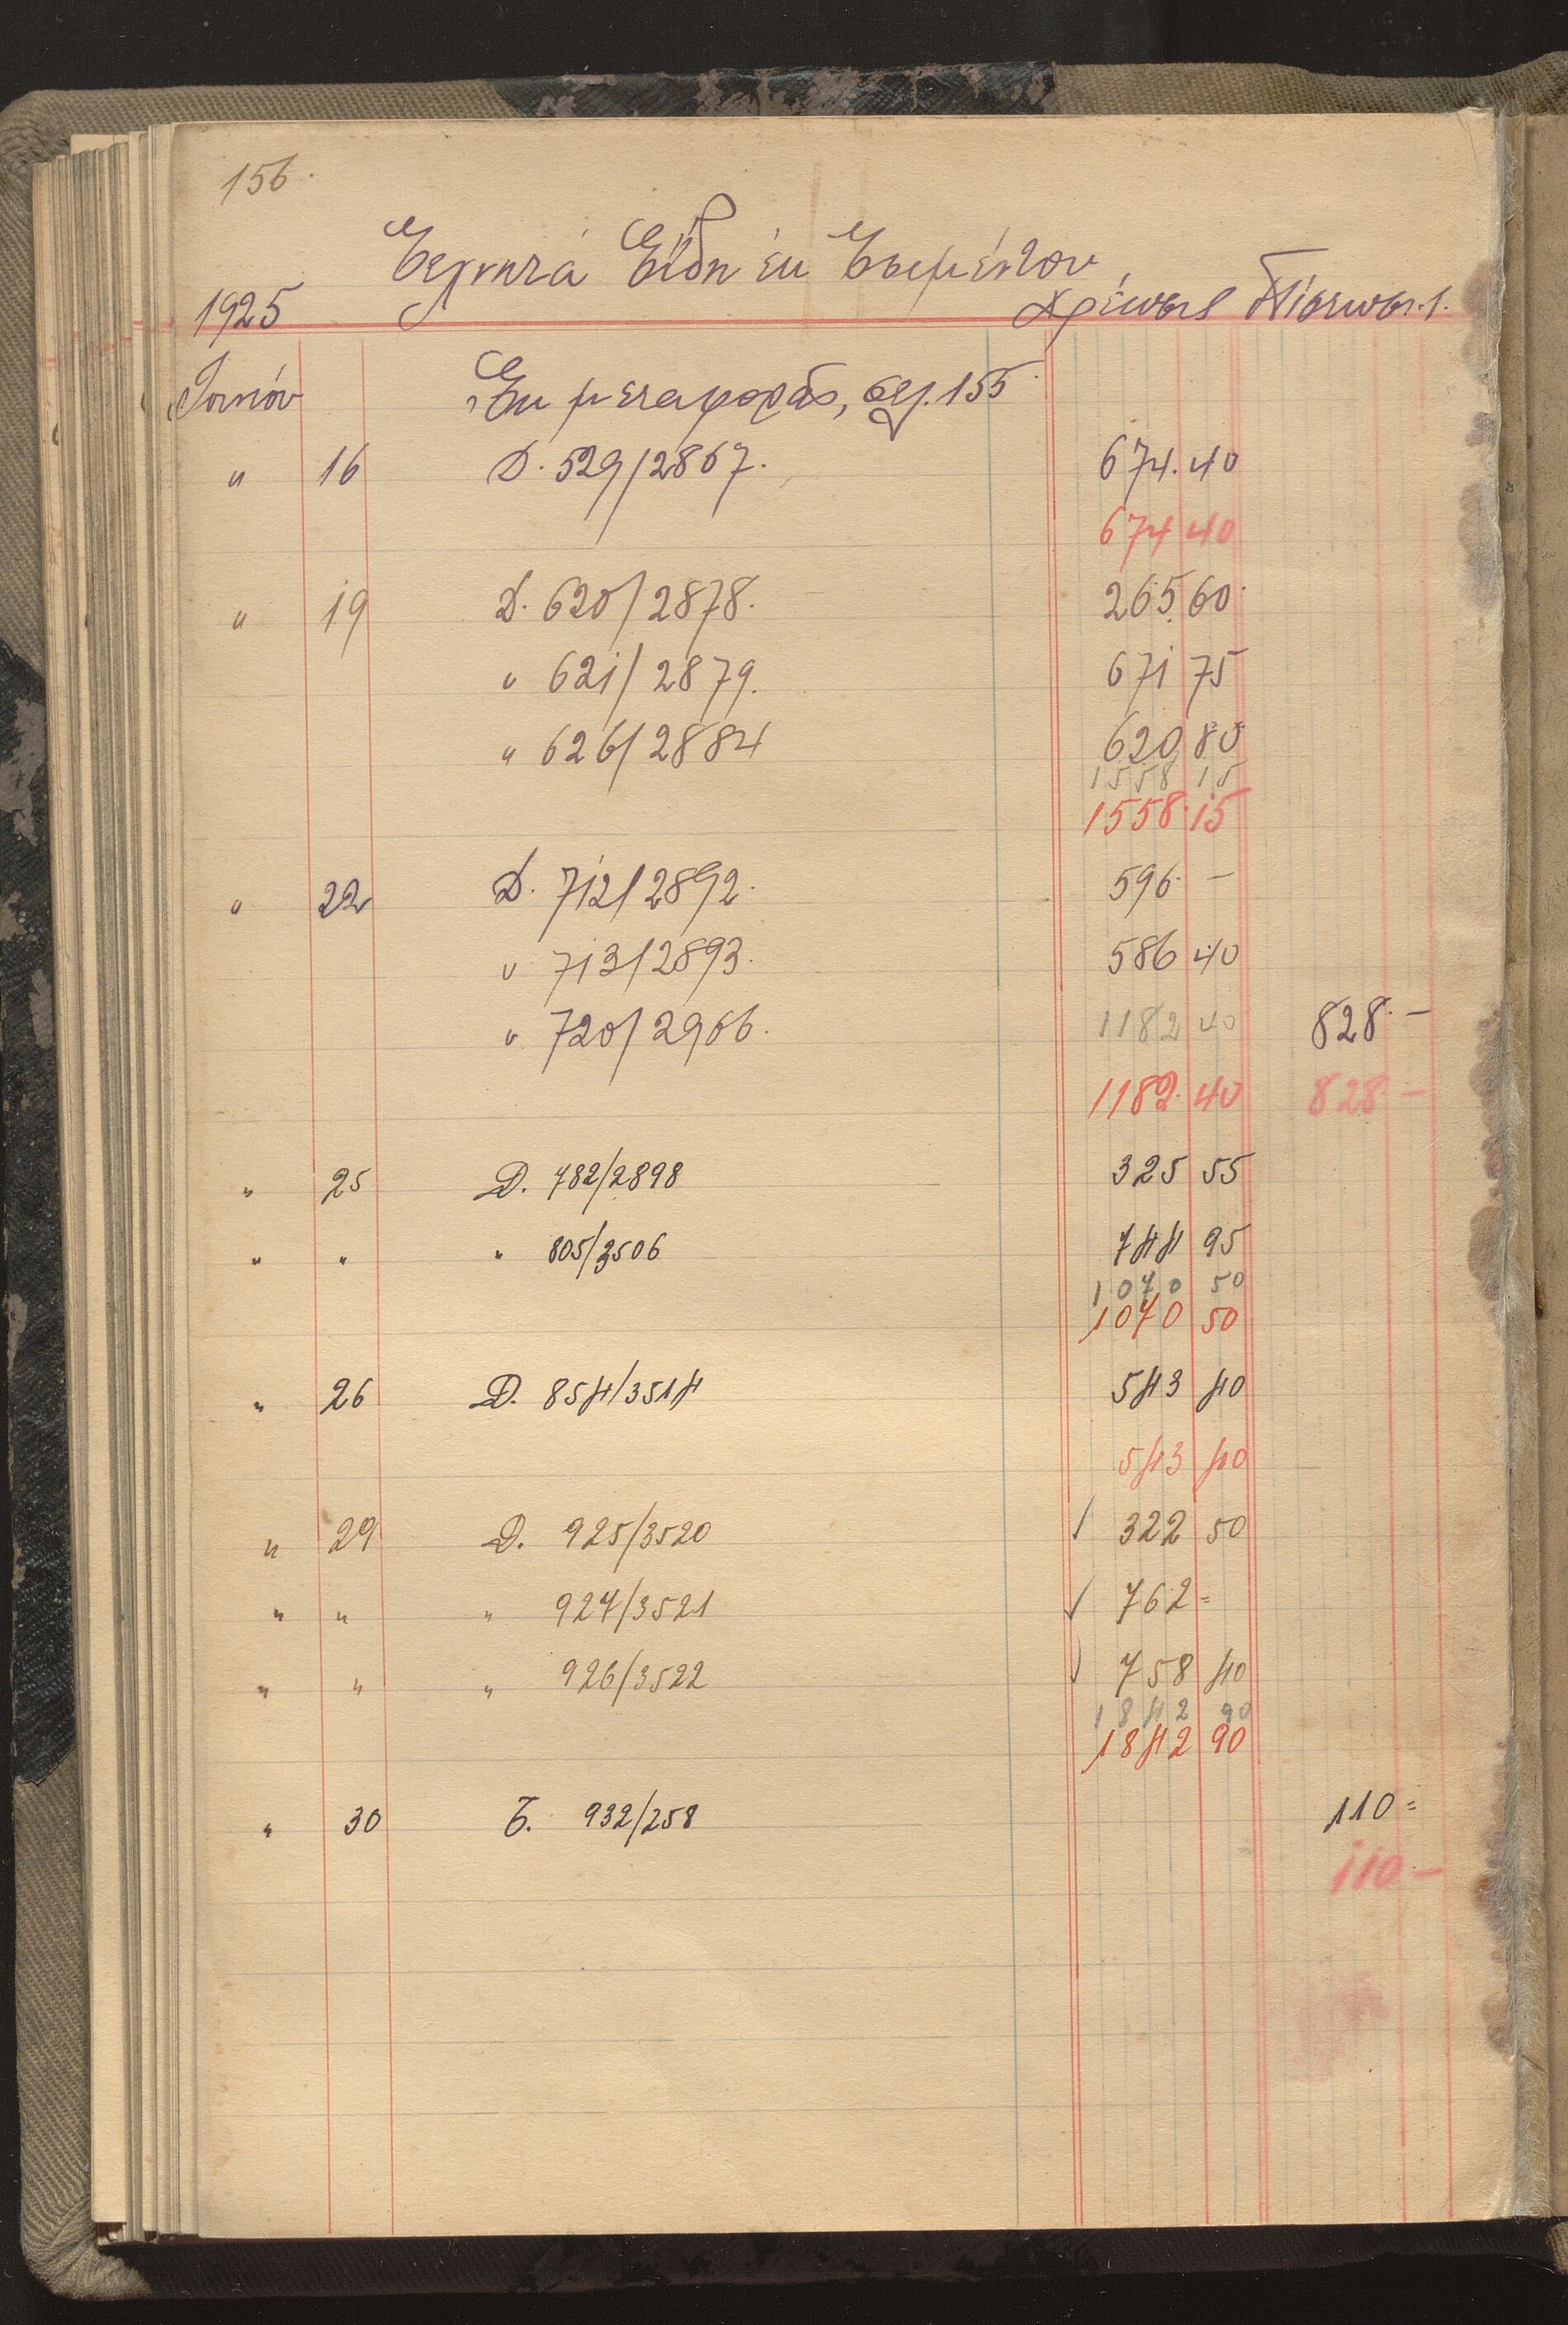 156.
Τεχνητά Είδη έκ Τσιμέντου
1925 Χρέωσις Πίστωσις.
Ἰουνίου Ἐκ μεταφορᾶς, σελ. 155
" 16 Δ. 529/2867. 674.40
674 40
" 19 Δ. 620/2878. 265 60
" 621/2879. 671 75
" 626/2884 620 80
1558 15
1558.15
" 22 Δ. 712/2892. 596. -
" 713/2893. 586 40
" 720/2966. 1182 40 828. -
1182.40 828 -
" 25 D. 782/2898 325 55
" " " 805/3506 744 95
1070 50
1070 50
" 26 D. 854/3514 543 40
543 40
" 29 D. 925/3520 322 50
" " " 927/3521 762 =
" " " 926/3522 758 40
1842 90
1842 90
" 30 Τ. 932/258 110 =
110 -